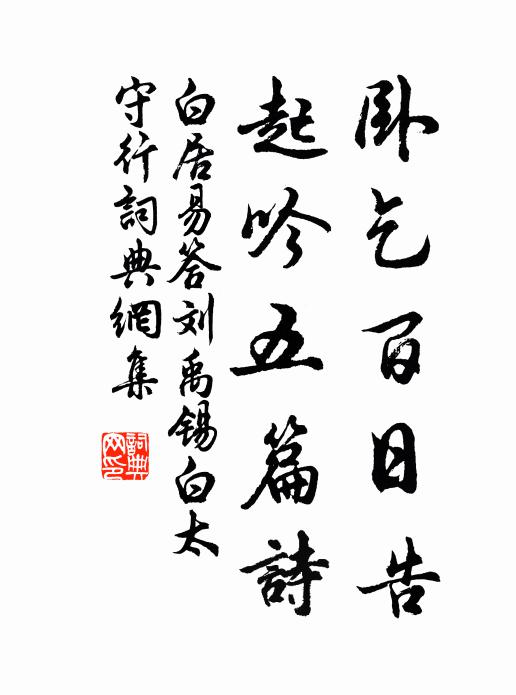 卧乞百日告
起吟五篇詩
白居易答刘禹锡白太
守行詞典網集
詞典网印